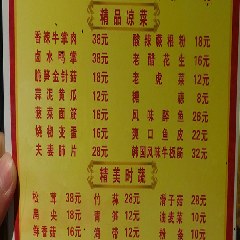 精品凉菜
香辣牛掌肉 38元 酸辣蕨根粉 18元
卤水鸭掌 38元 老醋花生 16元
脆笋金针菇 18元 老虎菜 12元
蒜泥黄瓜 12元 糖 8元
菠菜面筋 16元 风味酥鱼 28元
16元 爽口鱼皮 22元
夫妻肺片 28元 韩国风味牛板筋 32元
精美时蔬
松茸 38元 竹荪 28元 滑子菇 28元
黑尖 18元 青笋 12元 油麦菜 10元
鲜香菇 16元 海带 12元 10元